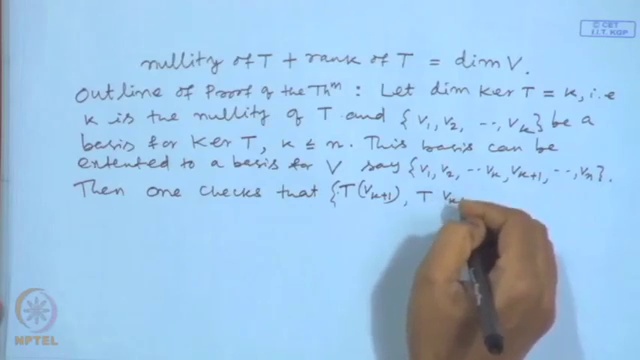 © CET
I.I.T. KGP
nullity of T + rank of T = dim V.
Outline of Proof of the Thᵐ : Let dim ker T = k, i.e
k is the nullity of T and {v₁, v₂, ..., vₖ} be a
basis for Ker T, k ≤ n. This basis can be
extented to a basis for V say {v₁, v₂, ... vₖ, vₖ₊₁, ..., vₙ}.
Then one checks that {T(vₖ₊₁), T vₖ
NPTEL